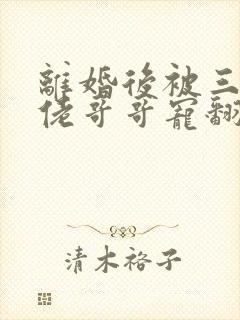 離婚後被三
佬哥哥寵翻
清木裕子